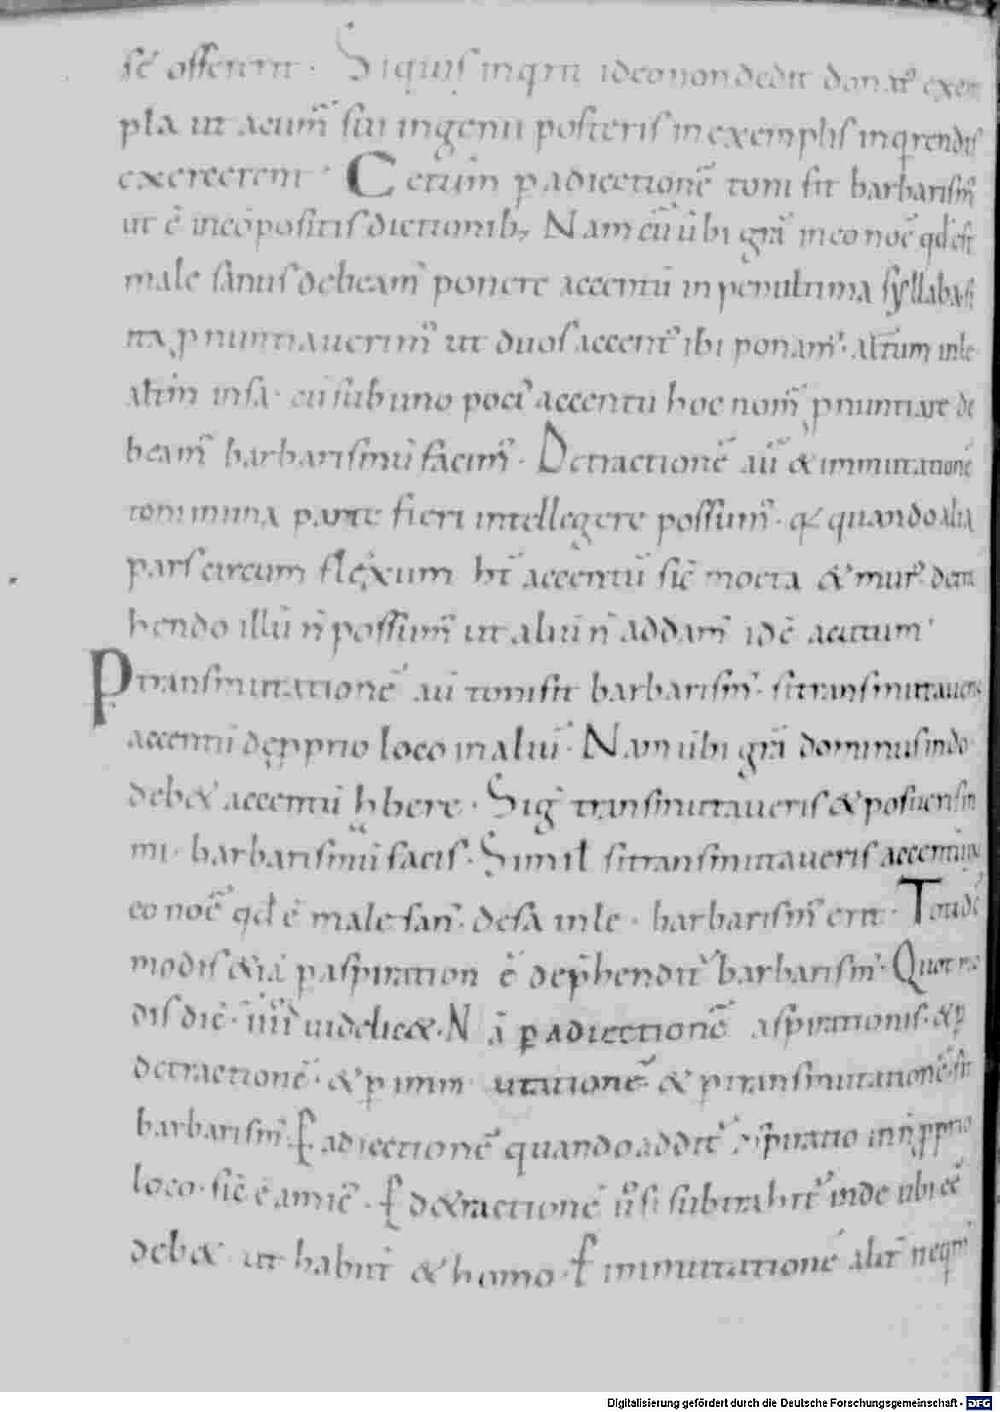 sē offerent. Siquis inqrit ideo non dedit donatꝰ exem
pla ut acumīn sui ingenii posteris in exemplis inqrendis
exercerent. Ceterum p adiectionē toni fit barbarismꝰ
ut ē incōpositis dictionibꝫ. Nam cū ūbi grā in eo noē qđ est
male sanus debeamꝰ ponere accentū in penultima syllaba si
ita pnuntiauerimꝰ ut duos accentꝰ ibi ponamꝰ. alterum in le
alterum in sa. cū sub uno pocꝰ accentu hoc nomꝰ pnuntiare de
beamꝰ barbarismū facimꝰ. Detractionē aū & immutationē
toni in una parte fieri intellegere possumꝰ. qa quando alia
pars circumflexum ht̄ accentū sic̄ moeta & murꝰ detra
hendo illū n̄ possumꝰ ut aliū n̄ addamꝰ idē acutum
P transmutationē aū toni fit barbarismꝰ. si transmutaueris
accentū de pprio loco in aliū. Nam ūbi grā dominus in do
deb& accentū hbere. Sig transmutaueris & posueris in
mi. barbarismū facis. Simil si transmutaueris accentū in
eo noē qđ ē male sanꝰ. de sa in le. barbarismꝰ erit. Totidē
modis &iā p aspiration ē dephenditꝰ barbarismꝰ. Quot mo
dis dic̄. iiii uidelic&. Nā p adiectionē aspirationis. & p
detractionē. & p imm utationē & p transmutationē fit
barbarismꝰ. P adiectionē quando additꝰ aspiratio in n̄ pprio
loco. sic̄ ē amic̄. P d&ractionē ū si subtrahitꝰ inde ubi eē
deb& ut habuit & homo. P immutationē alit neqmꝰ
Digitalisierung gefördert durch die Deutsche Forschungsgemeinschaft - DFG